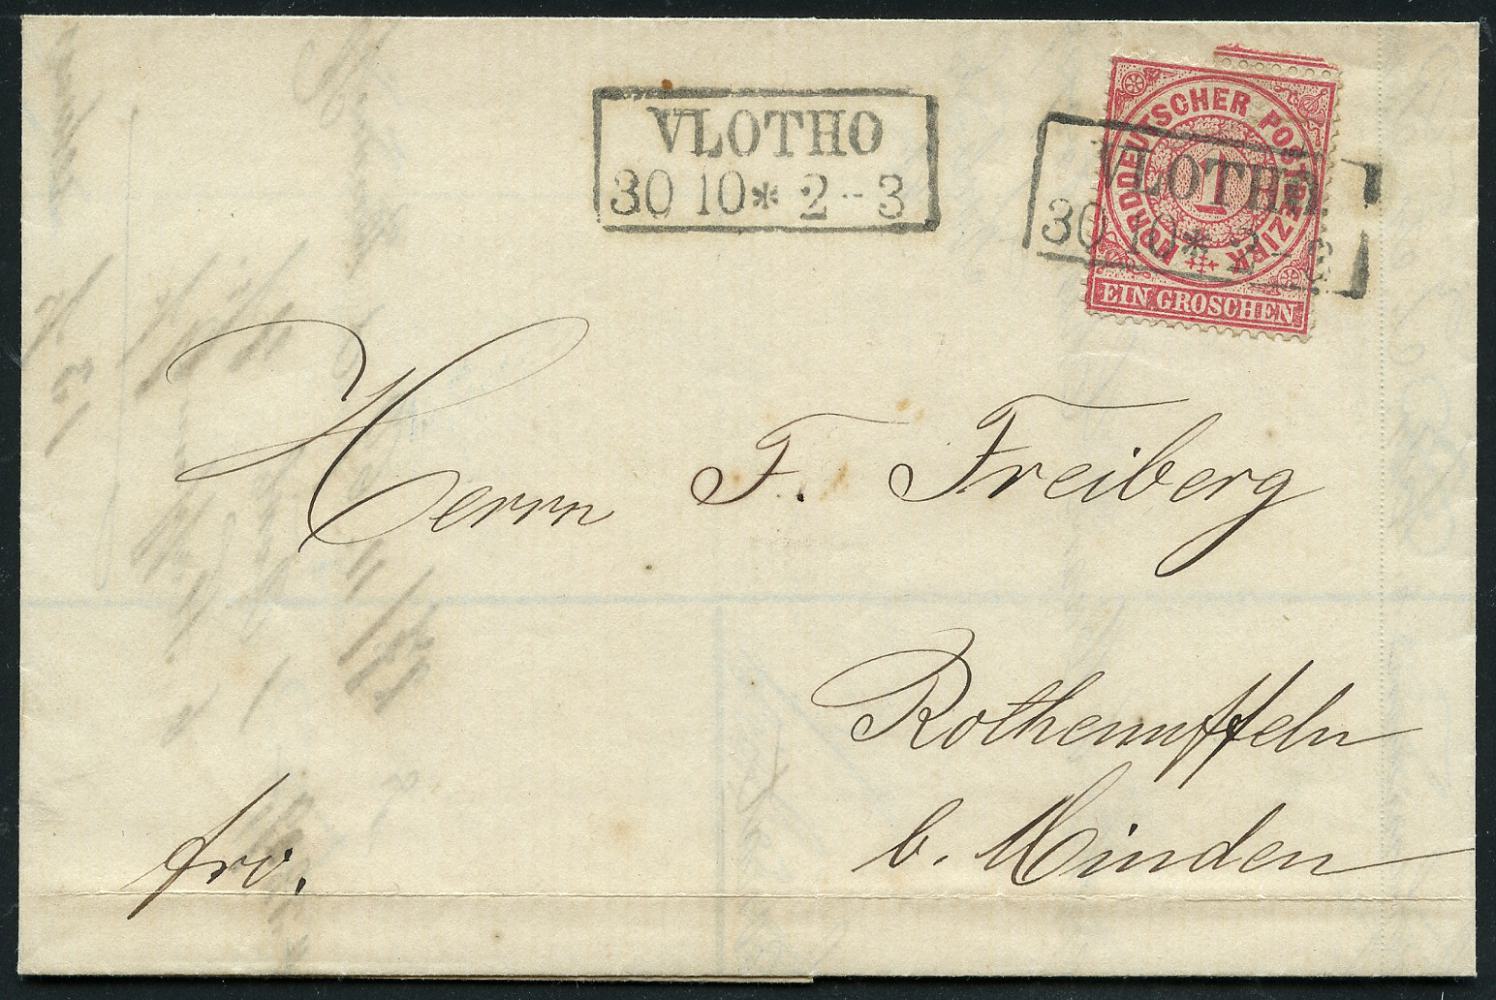 VLOTHO
30 10 * 2 - 3
NORDDEUTSCHER POSTBEZIRK
1
EIN GROSCHEN
VLOTHO
30 10 * 2 - 3
Herrn F. Freiberg
Rothenuffeln
b. Minden
fro.